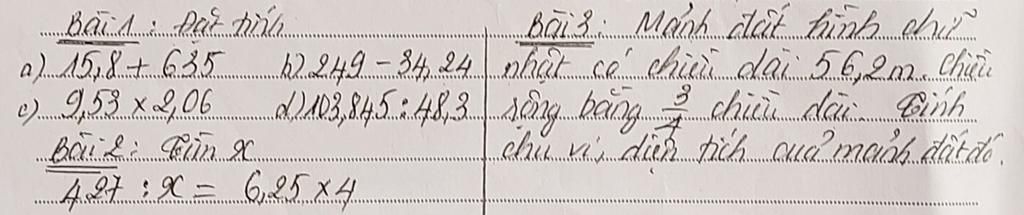 Bài 1 : Đặt tính
a) 15,8 + 635 b) 249 - 34,24
c) 9,53 x 2,06 d) 103,845 : 48,3
Bài 2 : Tìm x
427 : x = 6,25 x 4
Bài 3 : Mảnh đất hình chữ
nhật có chiều dài 56,2m. Chiều
rộng bằng 3/4 chiều dài. Tính
chu vi, diện tích của mảnh đất đó.